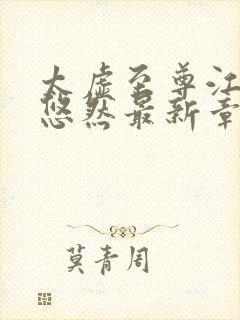 太虚至尊江
悠然最新章
莫青周